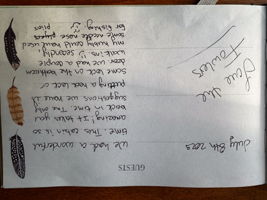 GUESTS
July 8th 2023
We had a wonderful
time. This cabin is so
amazing! It takes you
back in time. The only
suggestions we have is
putting a
some sort on the bathroom
door. We had a couple
Secondly,
my hubby could have used
some needle nose pliers
for fishing.
Love the
Fowlers